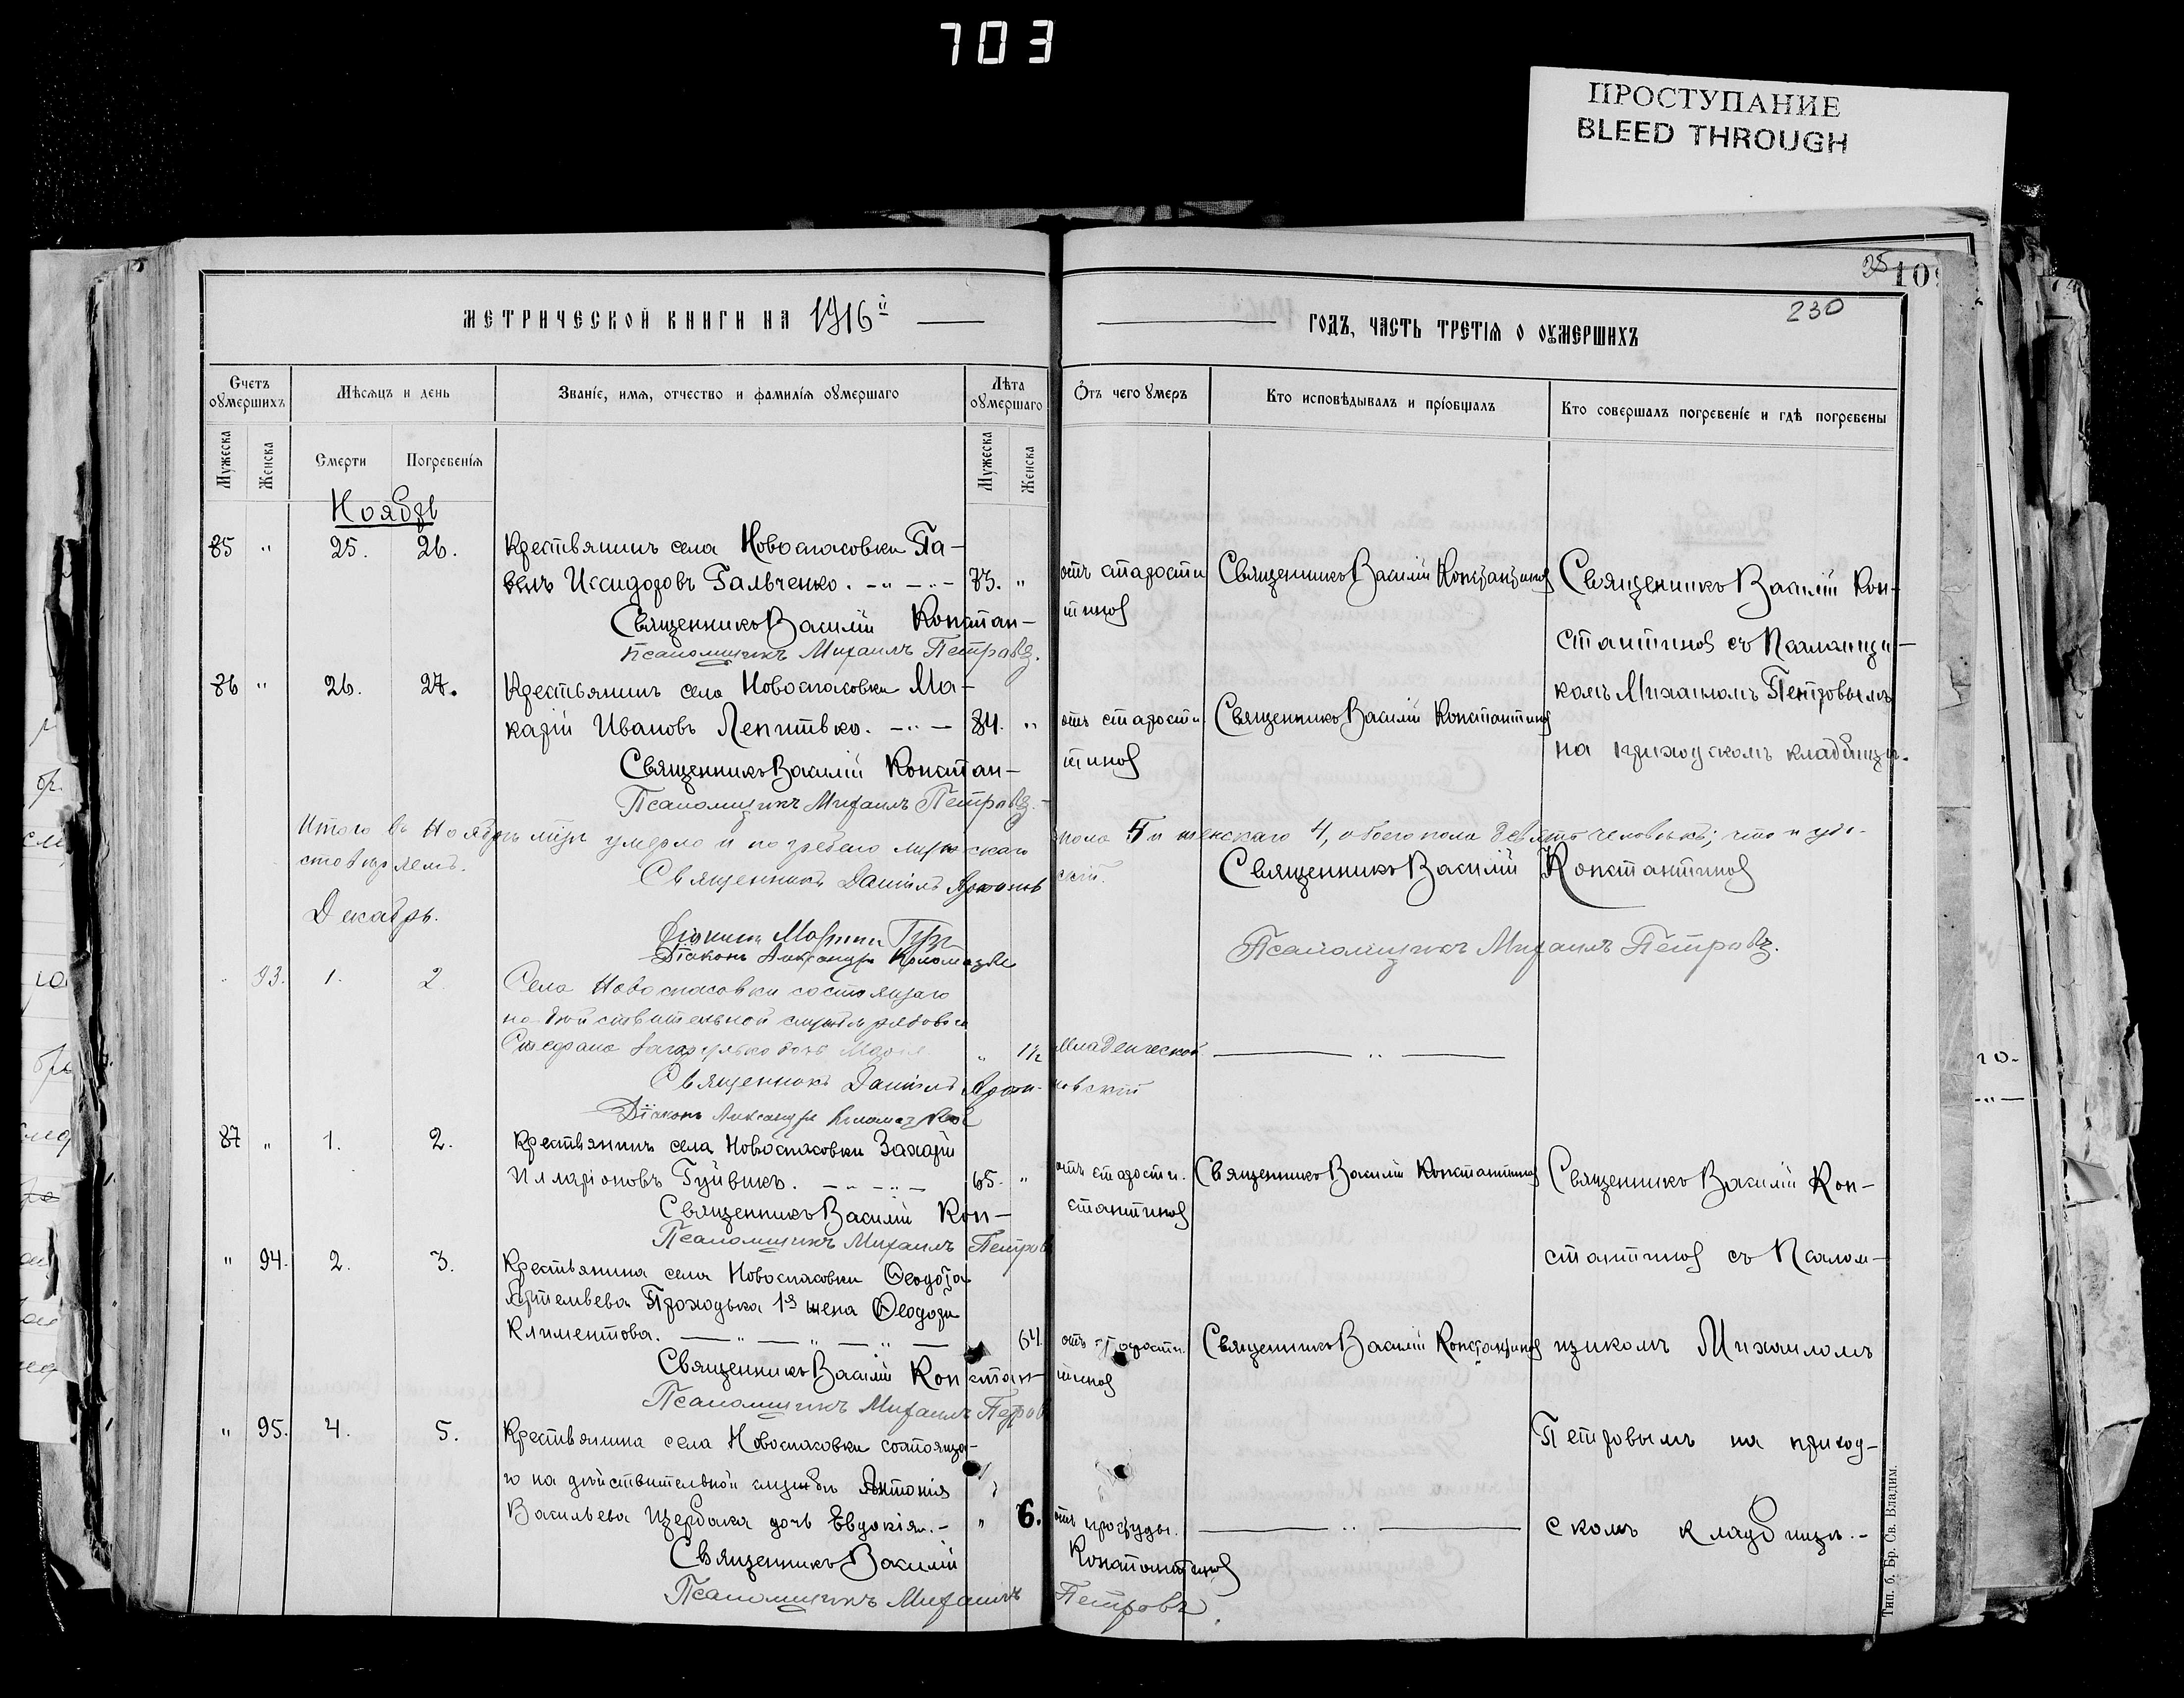 703
ПРОСТУПАНИЕ
BLEED THROUGH
МЕТРИЧЕСКОЙ КНИГИ НА 1916й
ГОДЪ, ЧАСТЬ ТРЕТІЯ О ОУМЕРШИХЪ
230
Счетъ оумершихъ
Мѣсяцъ и день
Званіе, имя, отчество и фамилія оумершаго
Лѣта оумершаго
Отъ чего умеръ
Кто исповѣдывалъ и пріобщалъ
Кто совершалъ погребеніе и гдѣ погребены
Мужеска
Женска
Смерти
Погребенія
Мужеска
Женска
Ноябрь
85 " 25. 26. Крестьянинъ села Новоспасовки Па-
велъ Исидоровъ Гальченко. 73. " отъ старости Священникъ Василій Константинов Священникъ Василій Кон-
Священникъ Василій Констан-тинов
стантинов съ Псаломщи-
Псаломщикъ Михаилъ Петровъ.
86 " 26. 27. Крестьянинъ села Новоспасовки Ма-
комъ Михаиломъ Петровымъ
карій Ивановъ 84. " отъ старости. Священникъ Василій Константинов
на приходскомъ кладбищѣ.
Священникъ Василій Констан-тинов
Псаломщикъ Михаилъ Петровъ.
Итого въ Ноябрѣ м-цѣ умерло и погребено мужскаго пола 5 и женскаго 4, обоего пола девять человѣкъ; что и удо-
стовѣряемъ.
Священникъ Даніилъ
Священникъ Василій Константинов
Декабрь.
Діаконъ Александръ
Псаломщикъ Михаилъ Петровъ.
93. 1. 2. Села Новоспасовки состоящаго
на дѣйствительной службѣ рядового
Стефана дочь Марія " 1½ Младенческой
Священникъ Даніилъ
Діаконъ Александръ
87 " 1. 2. Крестьянинъ села Новоспасовки Захарій
Илларіоновъ Гуйвикъ. 65. " отъ старости. Священникъ Василій Константинов Священникъ Василій Кон-
Священникъ Василій Кон-стантинов
Псаломщикъ Михаилъ Петровъ
" 94. 2. 3. Крестьянина села Новоспасовки Ѳеодота
стантинов съ Псалом-
Артемьева Проходька 1я жена Ѳеодора
Климентова. 64. отъ старости. Священникъ Василій Константинов щикомъ Михаиломъ
Священникъ Василій Констан-тинов
Псаломщикъ Михаилъ Петров
" 95. 4. 5. Крестьянина села Новоспасовки состояща-
Петровымъ на приход-
го на дѣйствительной службѣ Антонія
Васильева Щербака дочь Евдокія. " 6. отъ простуды.
скомъ кладбищѣ.
Священникъ Василій Константинов
Псаломщикъ Михаилъ Петровъ.
Тип. б. Бр. Св. Владим.